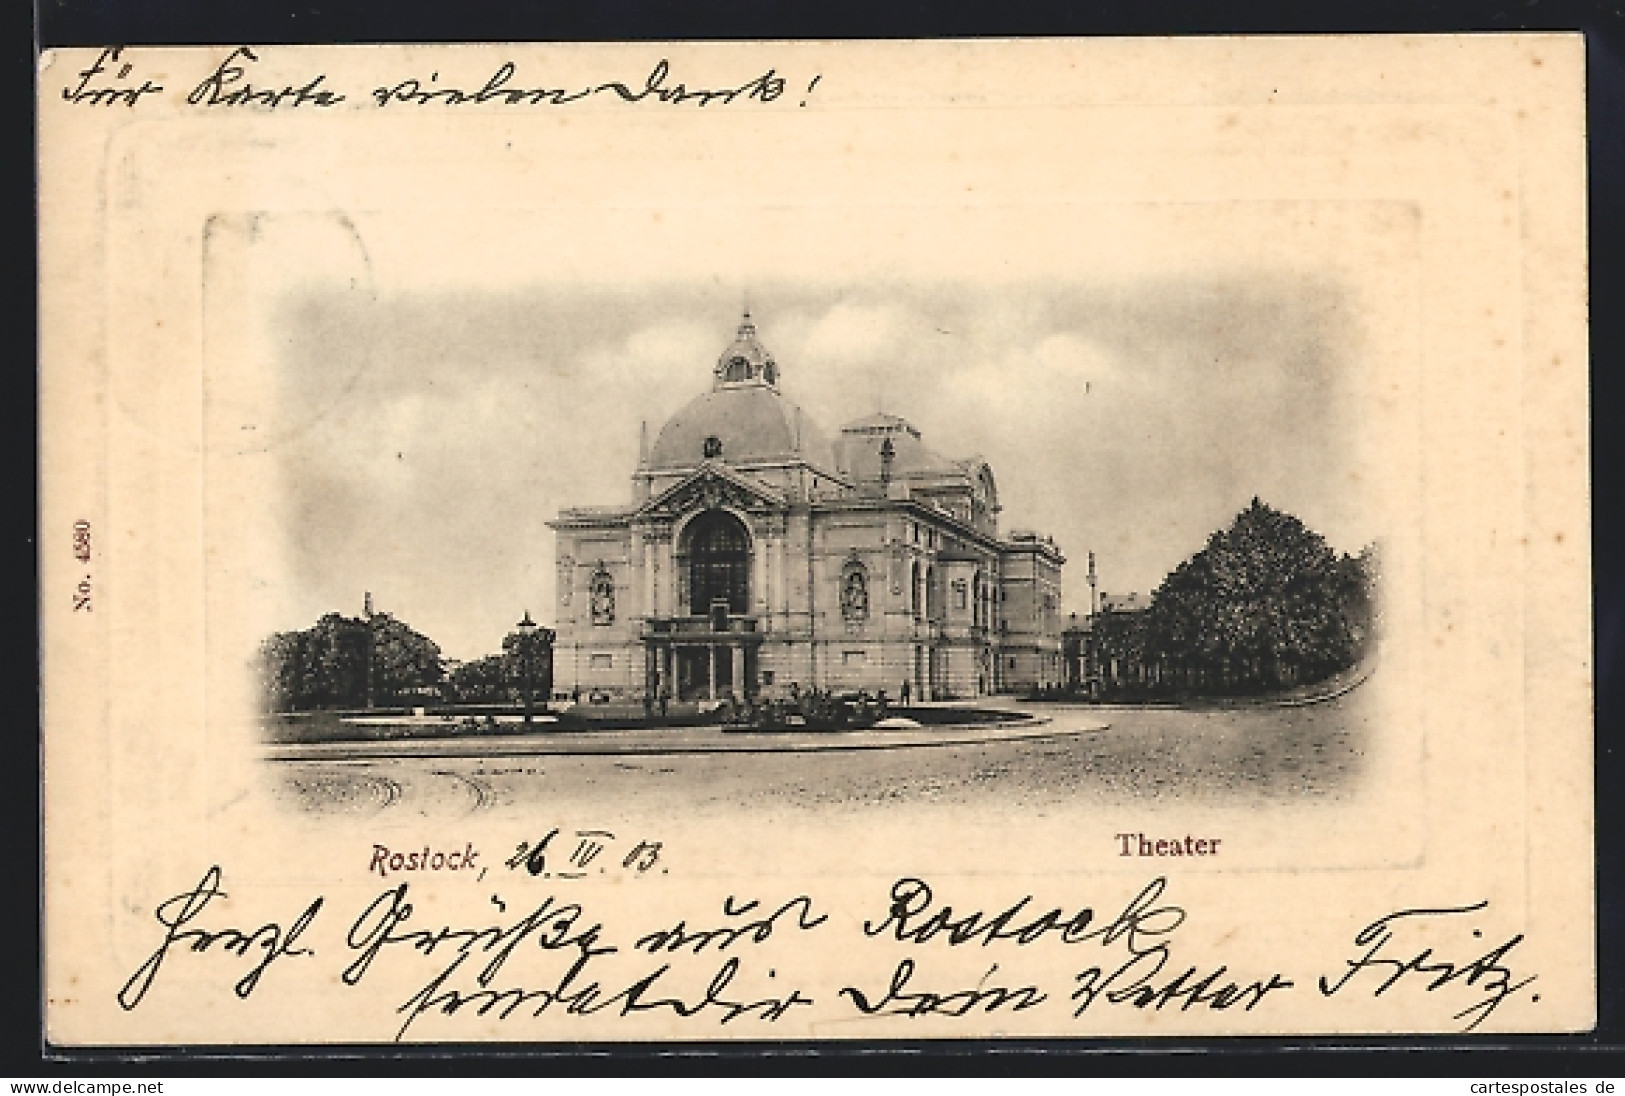 Für Karte vielen Dank!
No. 4580
Rostock, 26. IV. 03.
Theater
Herzl. Grüße aus Rostock
sendet Dir Dein Vetter Fritz.
www.delcampe.net
cartespostales de